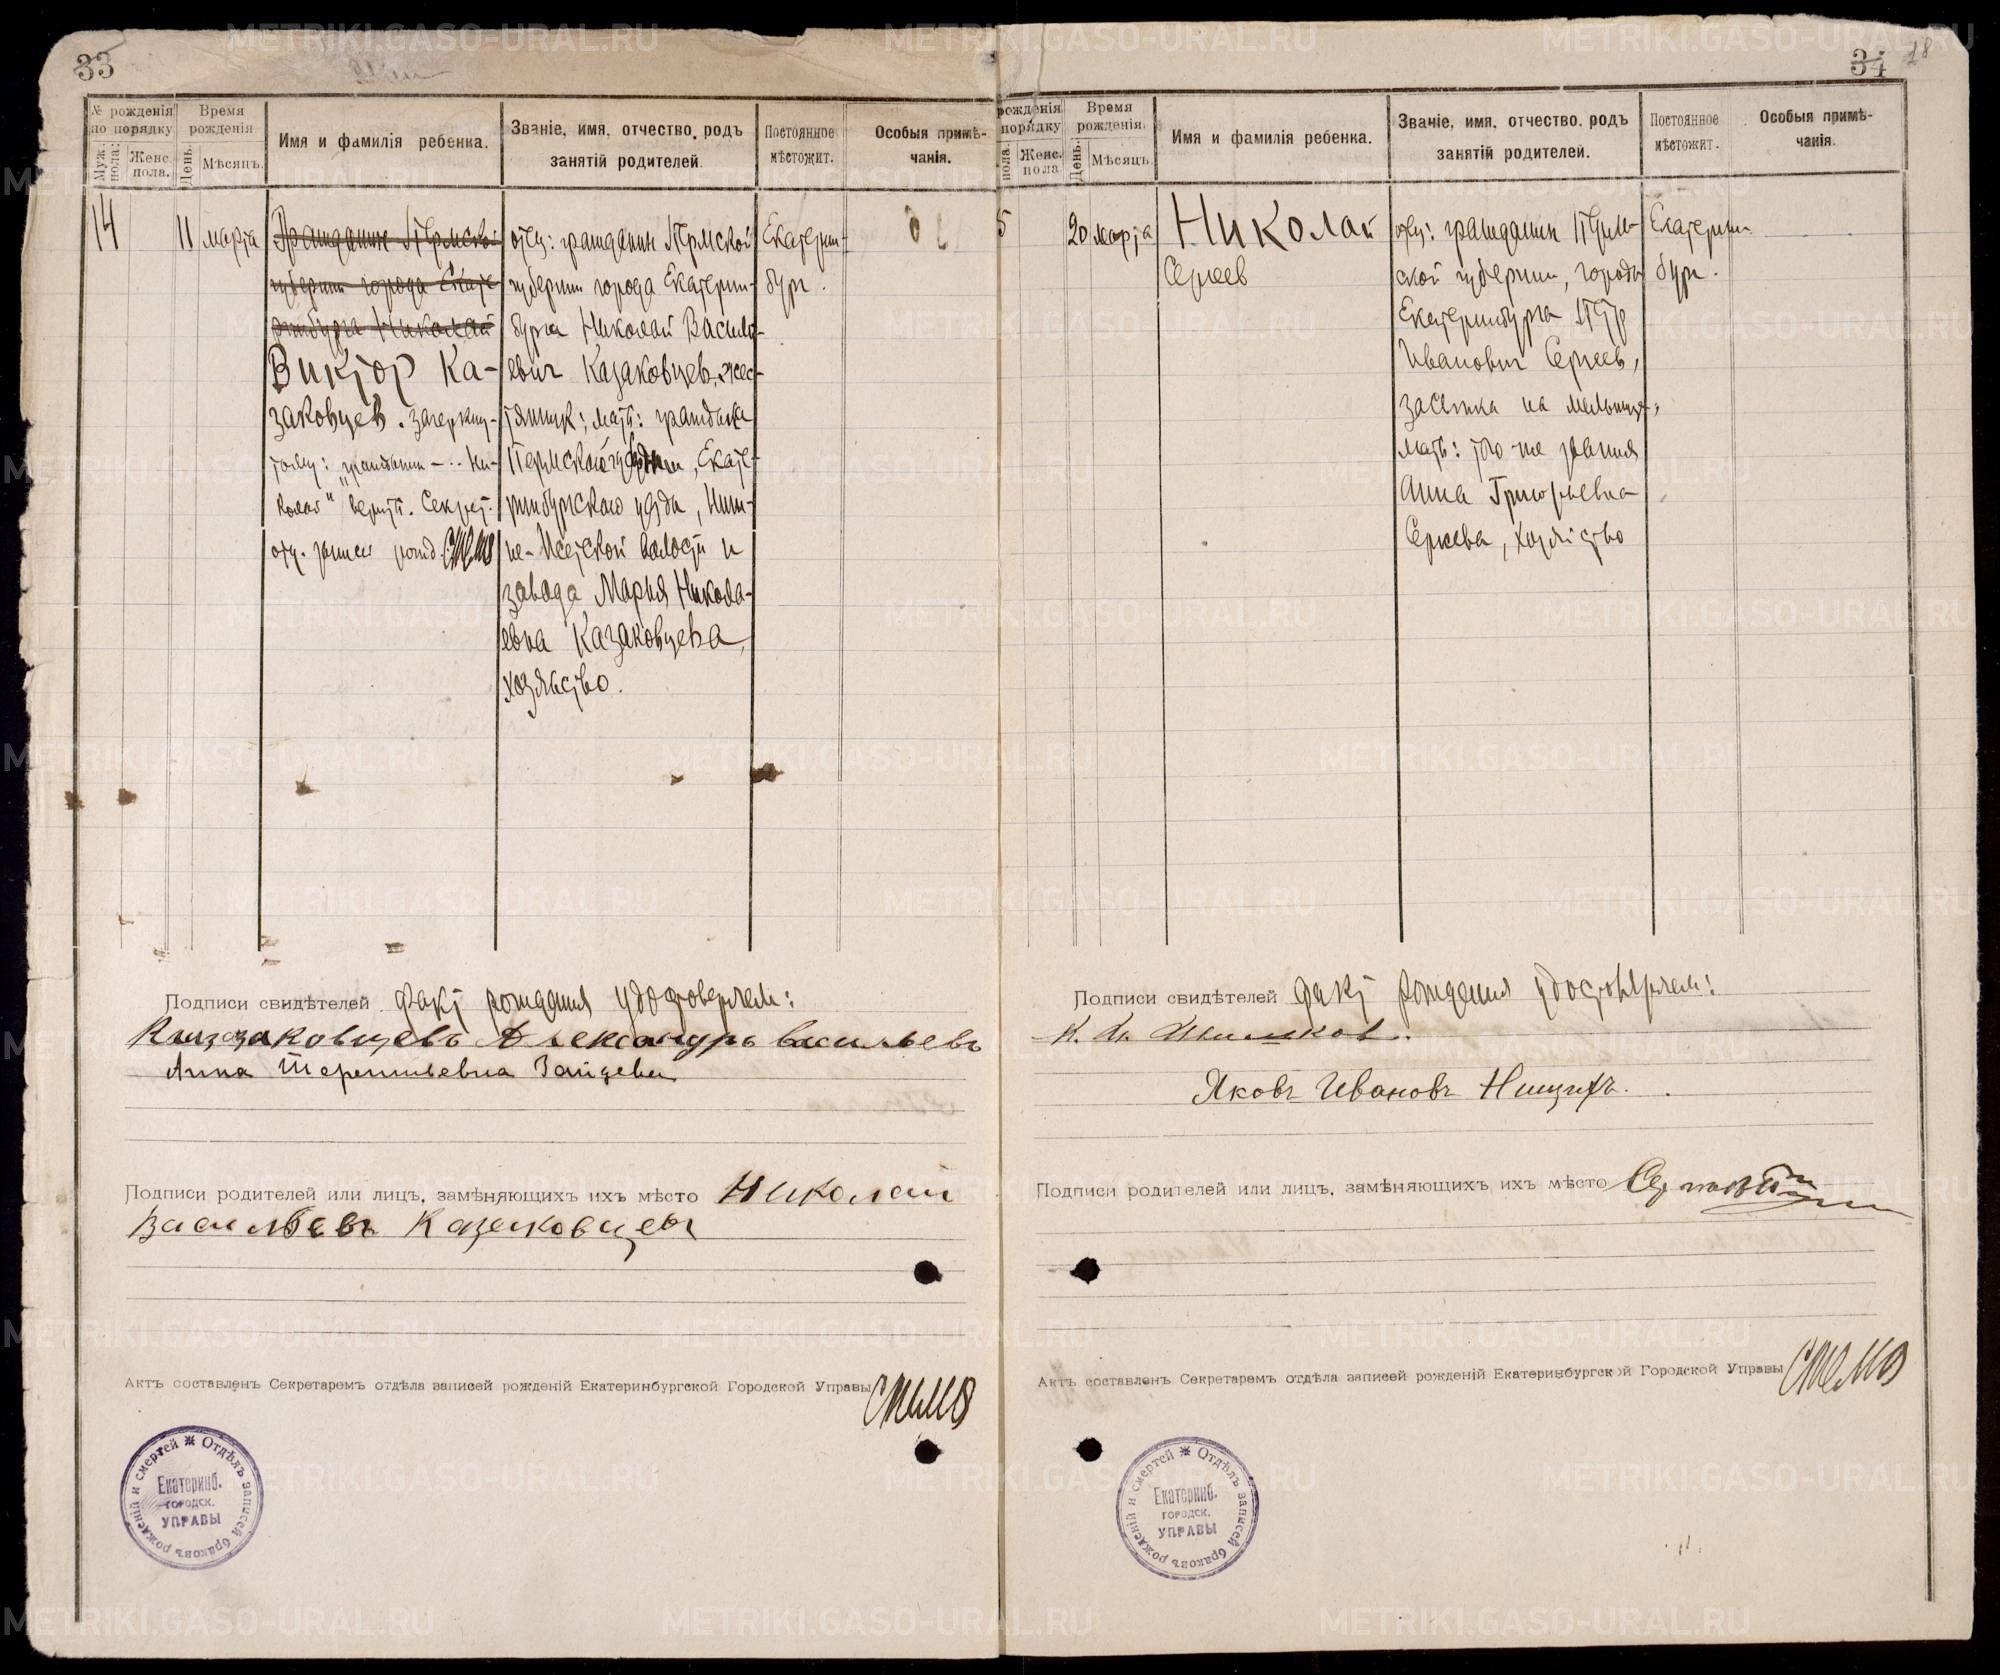 33
№ рожденія по порядку
Муж. пола.
Женс. пола.
Время рожденія
День.
Мѣсяцъ.
Имя и фамилія ребенка.
Званіе, имя, отчество, родъ занятій родителей.
Постоянное мѣстожит.
Особыя примѣчанія.
14
11
марта
Гражданин Пермской
губернии города Екате
ринбурга Николай
Виктор Ка-
заковцев. Зачеркну-
тому: „гражданин - .. Ни-
колай" верить. Секрет.
отд. записи рожд.
отец: гражданин Пермской
губернии города Екатерин-
бурга Николай Василь-
евич Казаковцев, жес-
тянник; мать: гражданка
Пермской губернии, Екате-
ринбургского уезда, Ниж-
не-Исетской волости и
завода Мария Никола-
евна Казаковцева,
хозяйство.
Екатерин-
бург.
Подписи свидѣтелей факт рождения удостоверяем:
Казаковцевъ Александръ Васильевъ
Анна Терентьевна Зайцева
Подписи родителей или лицъ, замѣняющихъ ихъ мѣсто Николай
Васильевъ Казаковцевъ
Актъ составленъ Секретаремъ отдѣла записей рожденій Екатеринбургской Городской Управы
Отдѣлъ записей браковъ рожденій и смертей
Екатеринб.
ГОРОДСК.
УПРАВЫ
34
28
рожденія порядку
пола.
Женс. пола
Время рожденія.
День.
Мѣсяцъ.
Имя и фамилія ребенка.
Званіе, имя, отчество. родъ занятій родителей.
Постоянное мѣстожит.
Особыя примѣчанія.
5
20
марта
Николай
Сергеев
отец: гражданин Перм-
ской губернии, города
Екатеринбурга Петр
Иванович Сергеев,
засыпка на мельнице,
мать: того-же звания
Анна Григорьевна
Сергеева, хозяйство
Екатерин-
бург.
Подписи свидѣтелей факт рождения удостоверяем:
Яковъ Ивановъ
Подписи родителей или лицъ, замѣняющихъ ихъ мѣсто
Актъ составленъ Секретаремъ отдѣла записей рожденій Екатеринбургской Городской Управы
Отдѣлъ записей браковъ рожденій и смертей
Екатеринб.
ГОРОДСК.
УПРАВЫ
METRIKI.GASO-URAL.RU